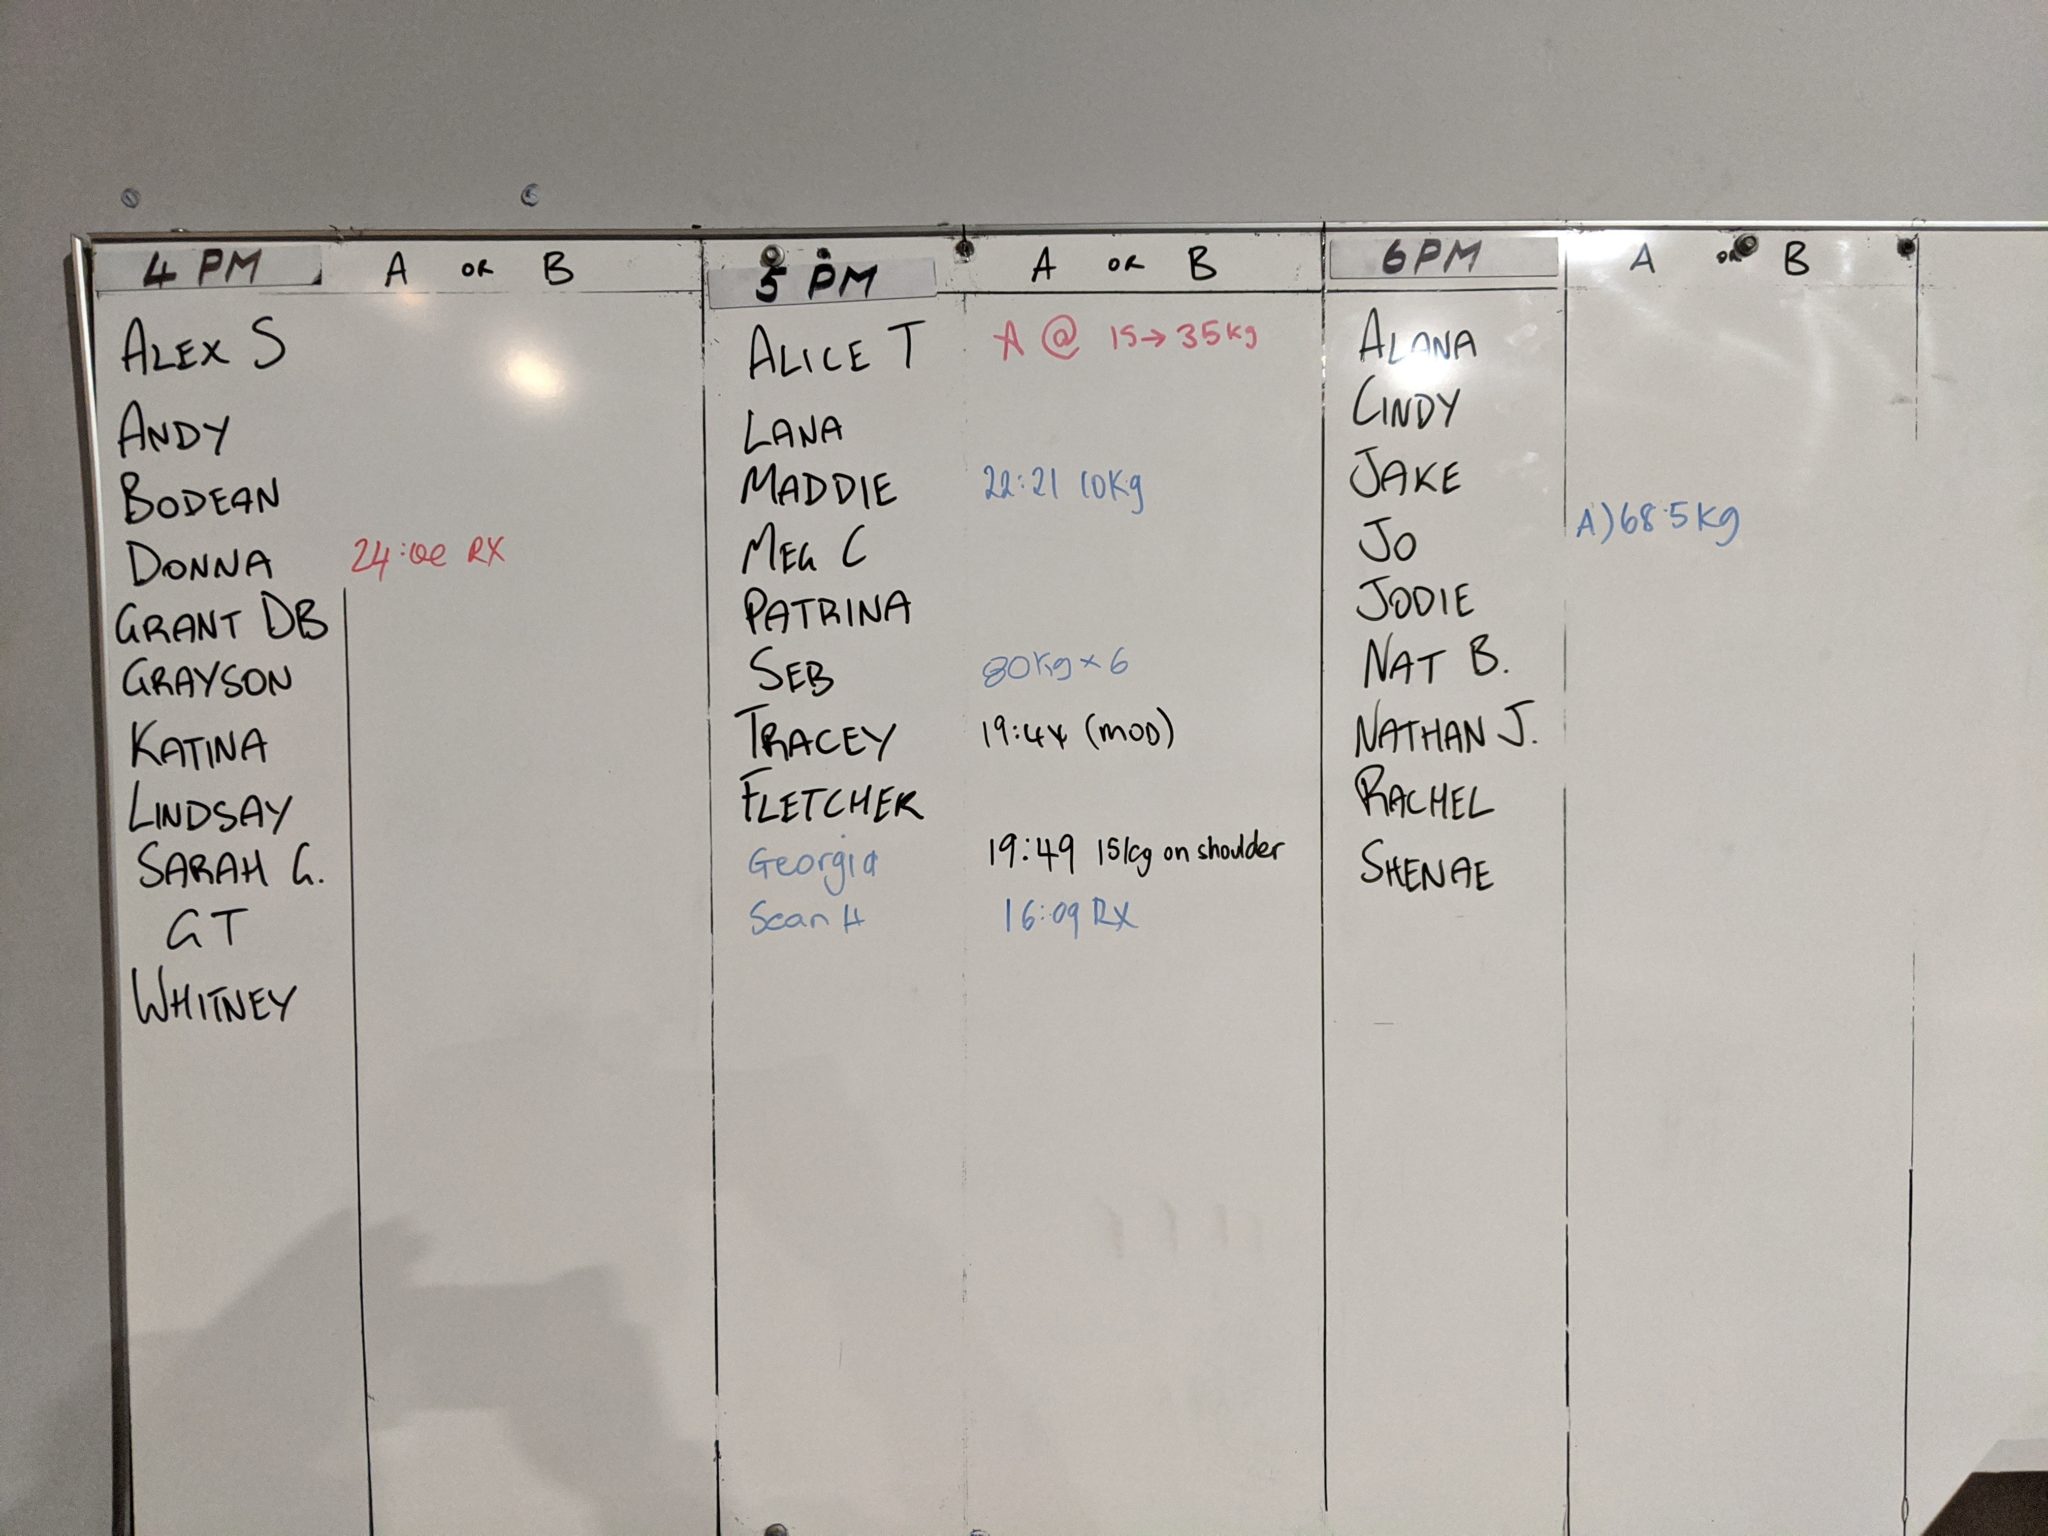 4 PM A OR B
ALEX S
ANDY
BODEAN
DONNA 24:00 RX
GRANT DB
GRAYSON
KATINA
LINDSAY
SARAH G.
GT
WHITNEY
5 PM A OR B
ALICE T A @ 15→35kg
LANA
MADDIE 22:21 10Kg
MEG C
PATRINA
SEB 80Kg x 6
TRACEY (MOD)
FLETCHER
Georgia 19:49 15kg on shoulder
Sean H 16:09 RX
6PM A OR B
ALANA
CINDY
JAKE
JO A) 68.5kg
JODIE
NAT B.
NATHAN J.
RACHEL
SHENAE